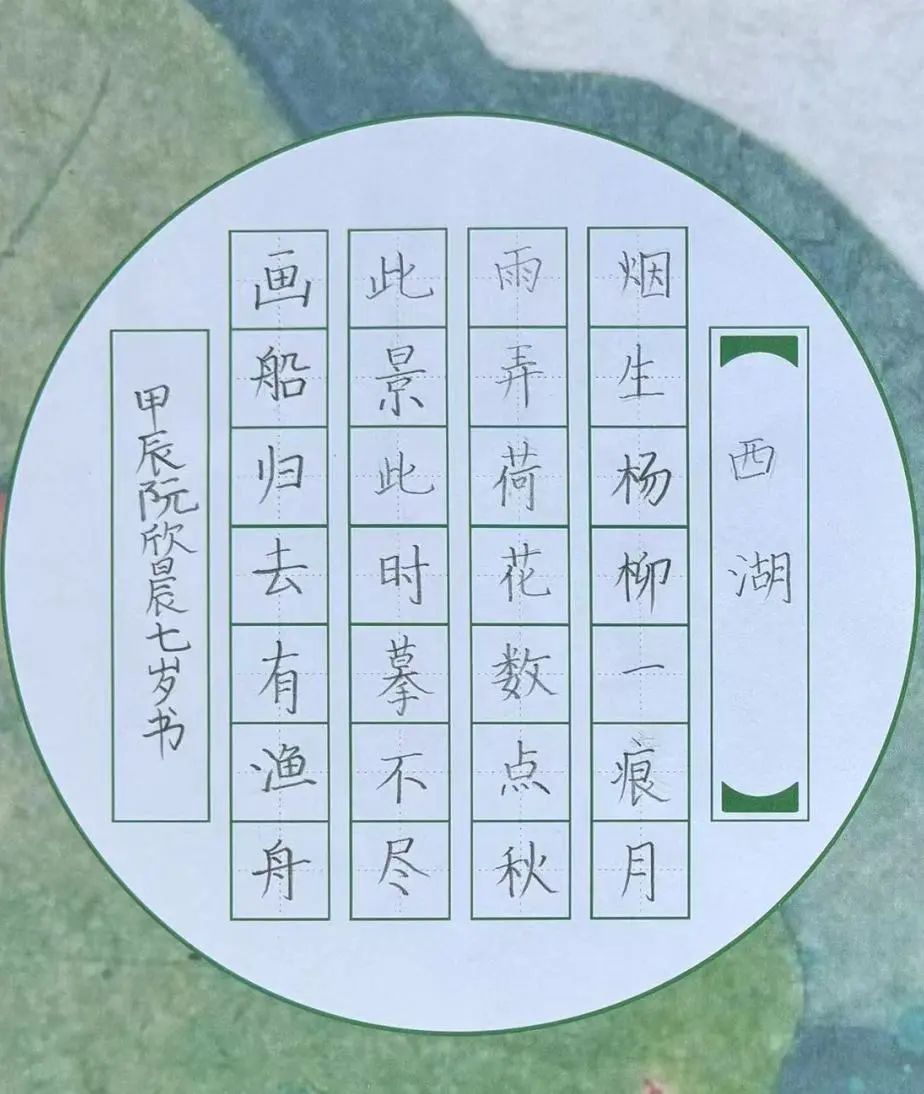 西湖
烟生杨柳一痕月
雨弄荷花数点秋
此景此时摹不尽
画船归去有渔舟
甲辰阮欣晨七岁书